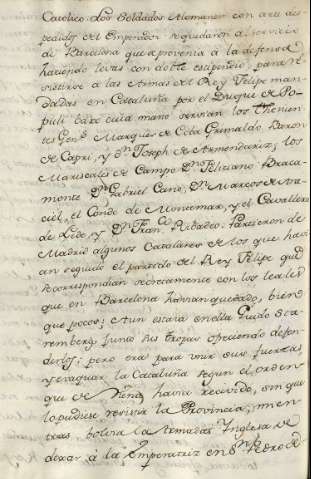 Catolico. Los Soldados Alemanes con arte des-
pedidos del Emperador se quedaron al servicio
de Barcelona que se prevenia a la defensa
haciendo levas con doble estipendio, para re-
sistirse a las Armas del Rey Felipe man-
dadas en Cataluña por el Duque de Po-
puli baxo cuia mano servian los Thenien-
tes Gen.s Marqués de Ceba Grimaldo, Baron
de Capri, y D.n Joseph de Armendariz; los
Mariscales de Campo D.n Feliziano Braca-
monte D.n Gabriel Cano, D.n Marcos de Ara-
ciel, el Conde de Montemar, y el Cavallero
de Lede, y D.n Fran.co Ribadeo. Partieron de
Madrid algunos Catalanes de los que havi-
an seguido el partido del Rey Felipe que
se correspondian secretamente con los leales
que en Barcelona havian quedado, bien
que pocos; Aun estava en ella Guido Sta-
remberg junto sus tropas ofreciendo defen-
derlos; pero era para unir sus fuerzas,
y evaquar la Cataluña segun el orden
que de Viena havia recivido, sin que
lo pudiese resistir la Provincia; mien-
tras bolvia la Armada Inglesa de
dexar a la Emperatriz en S.n Pedro de